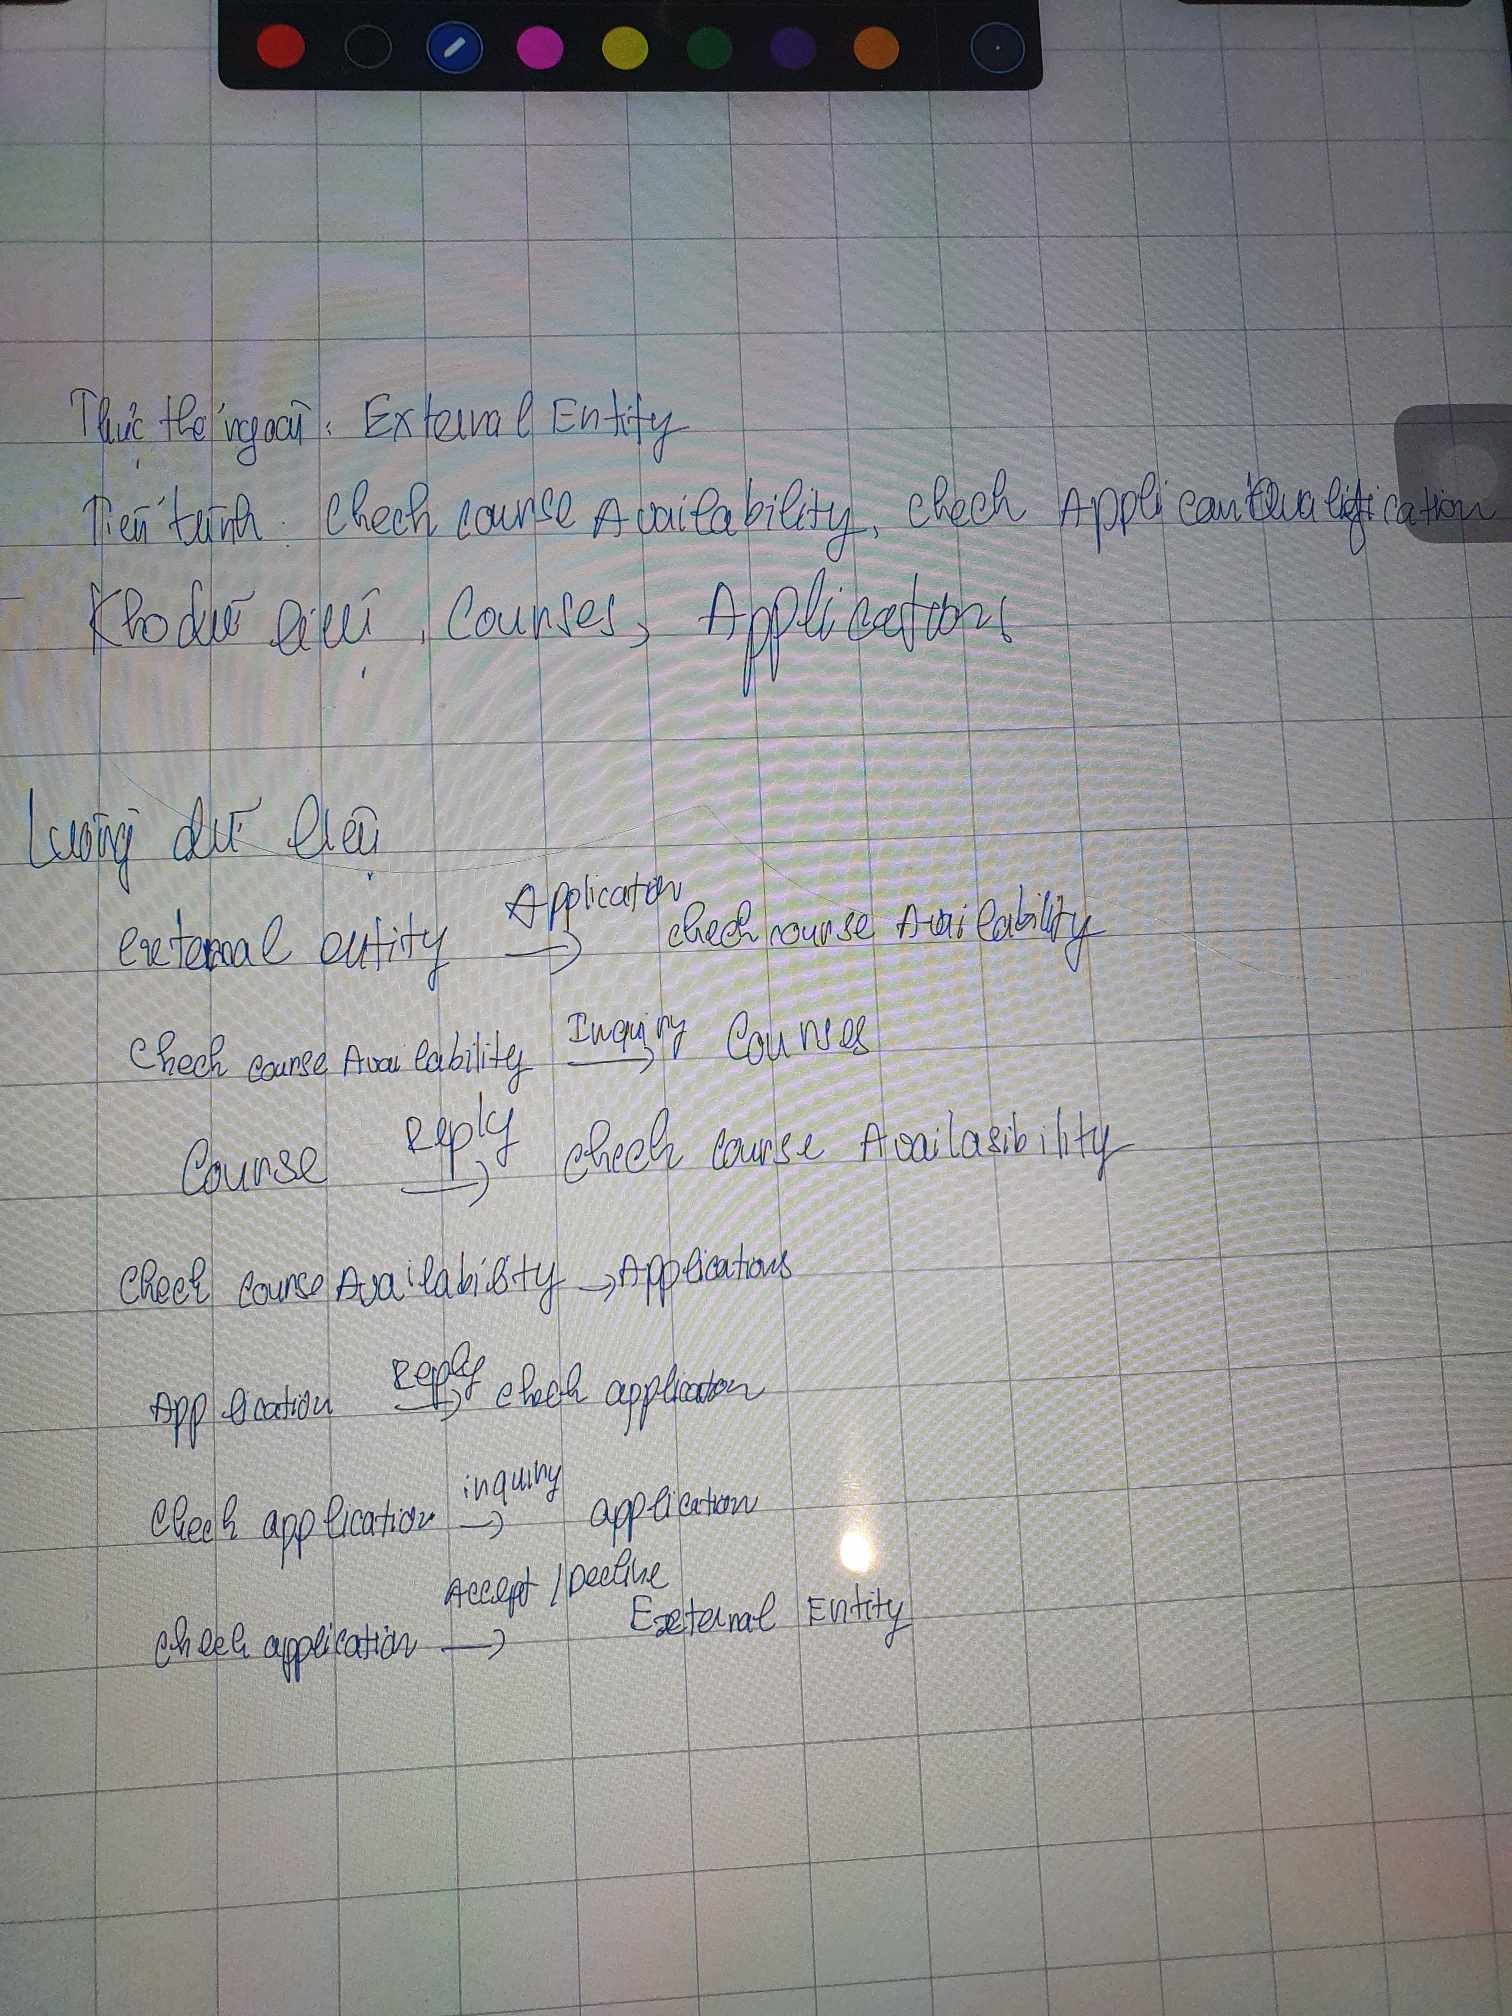 Thực thể ngoài: External Entity
Tiến trình: Check course Availability, Check Applicant Qualification
Kho dữ liệu: Courses, Applications
Luồng dữ liệu
external entity Application → check course Availability
Check course Availability Inquiry → Courses
Course Reply → check course Availasibility
Check course Availability → Applications
Application Reply → check application
Check application inquiry → application
check application Accept / Decline → External Entity